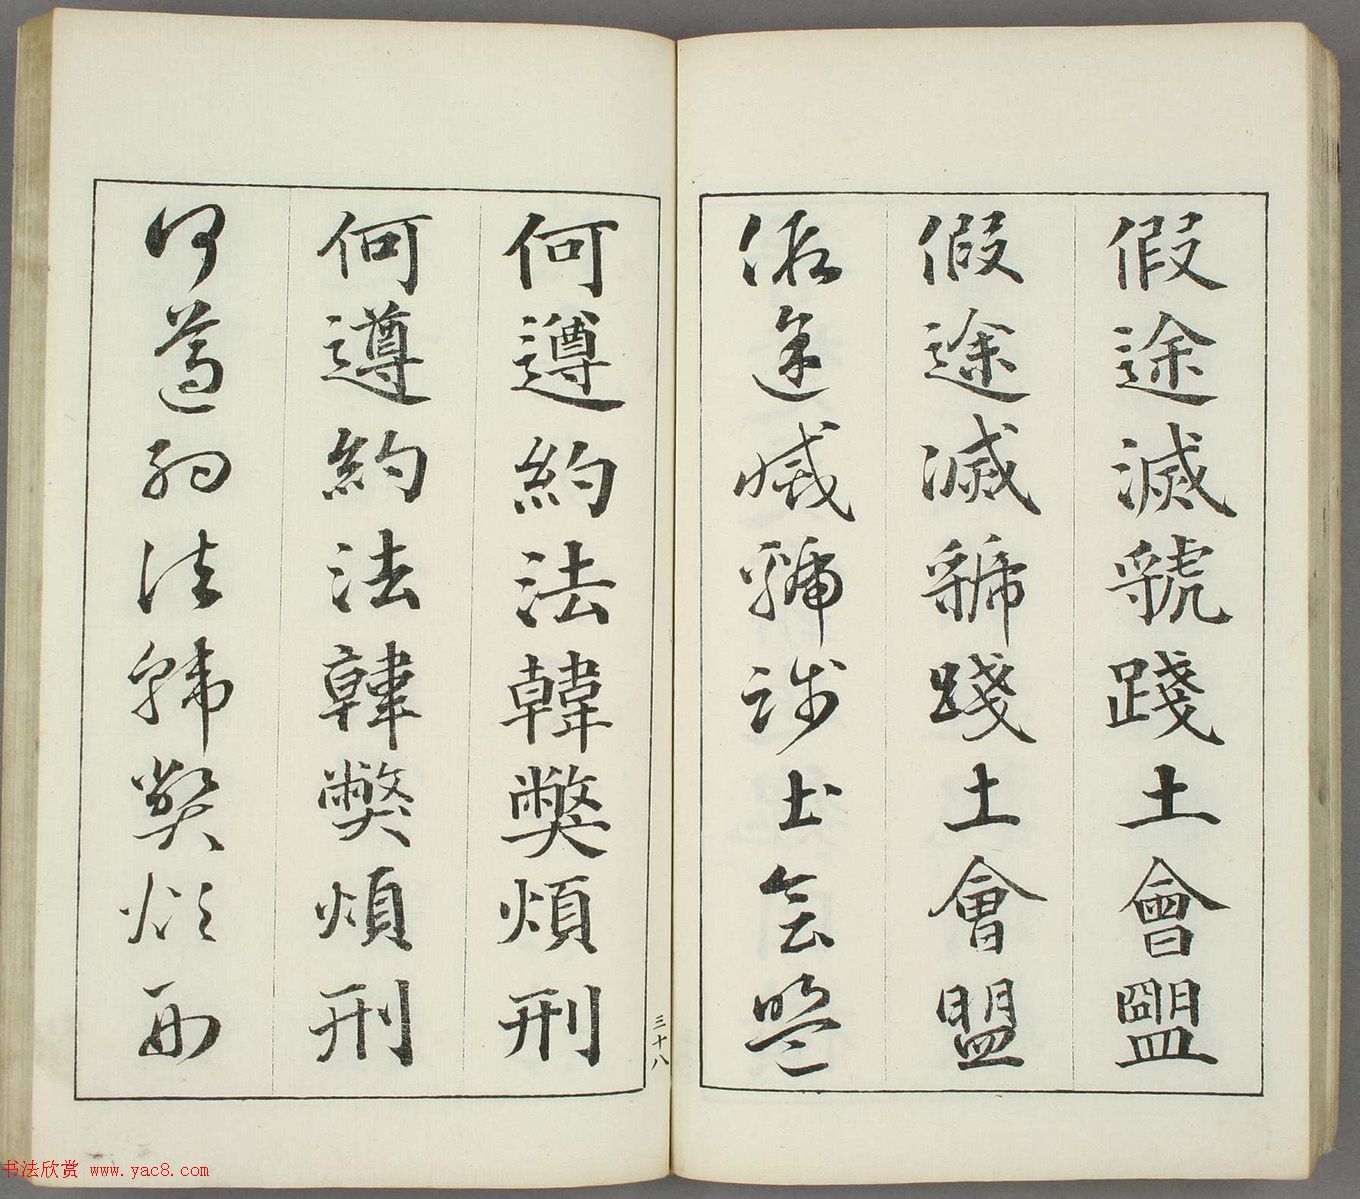 假途滅虢踐土會盟
假途滅虢踐土會盟
假途滅虢踐土會盟
三十八
何遵約法韓弊煩刑
何遵約法韓弊煩刑
何遵約法韓弊煩刑
书法欣赏 www.yac8.com